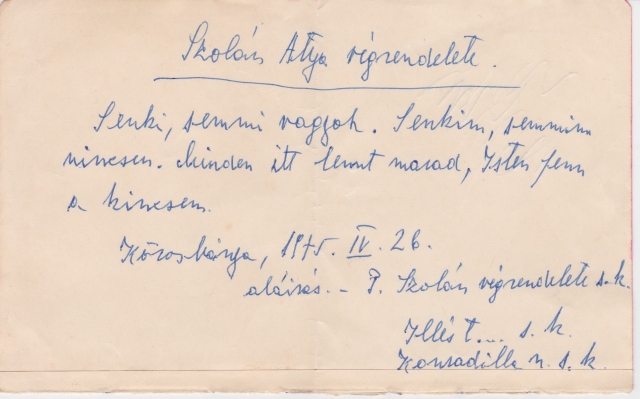 Szolán Atya végrendelete.
Senki, semmi vagyok. Senkim, semmim
nincsen. Minden itt lennt marad, Isten fenn
a kincsem.
Kőrösbánya, 1975. IV. 26.
aláírás. - P. Szolán végrendelete s.k.
Illés t... s. k.
Konradilla n. s. k.